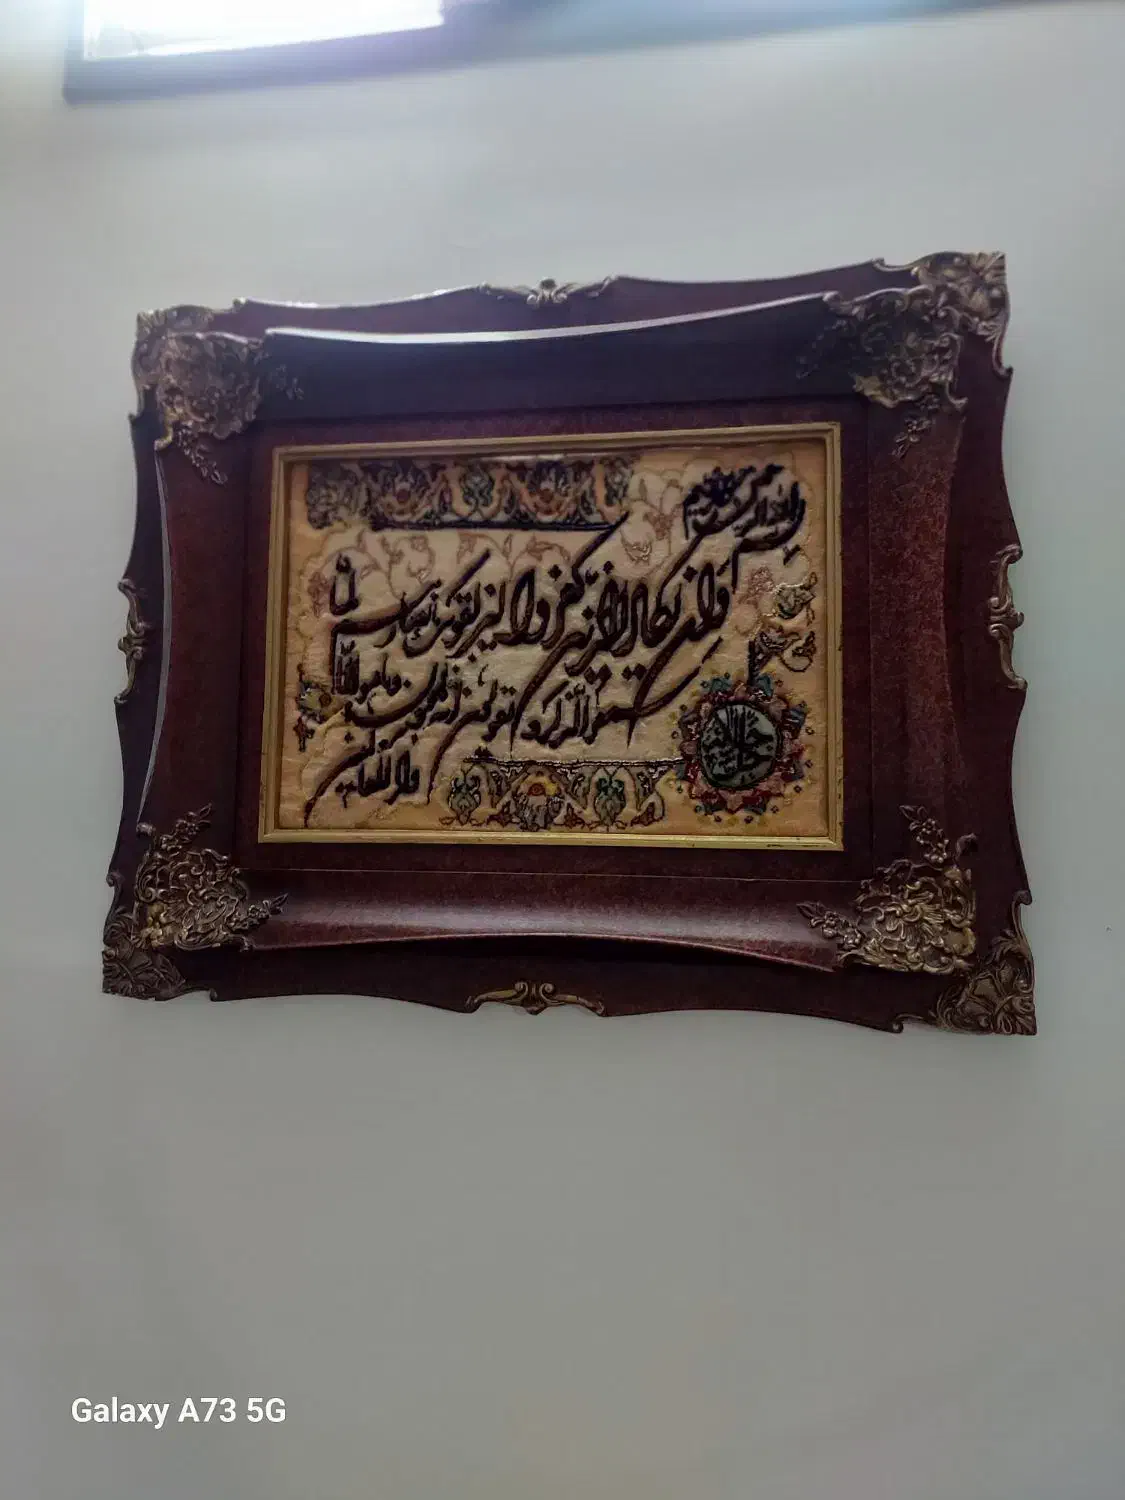 بسم الله الرحمن الرحيم
وان يكاد الذين كفروا ليزلقونك بابصارهم لما
سمعوا الذكر و يقولون انه لمجنون وما هو الا
ذكر للعالمين
Galaxy A73 5G